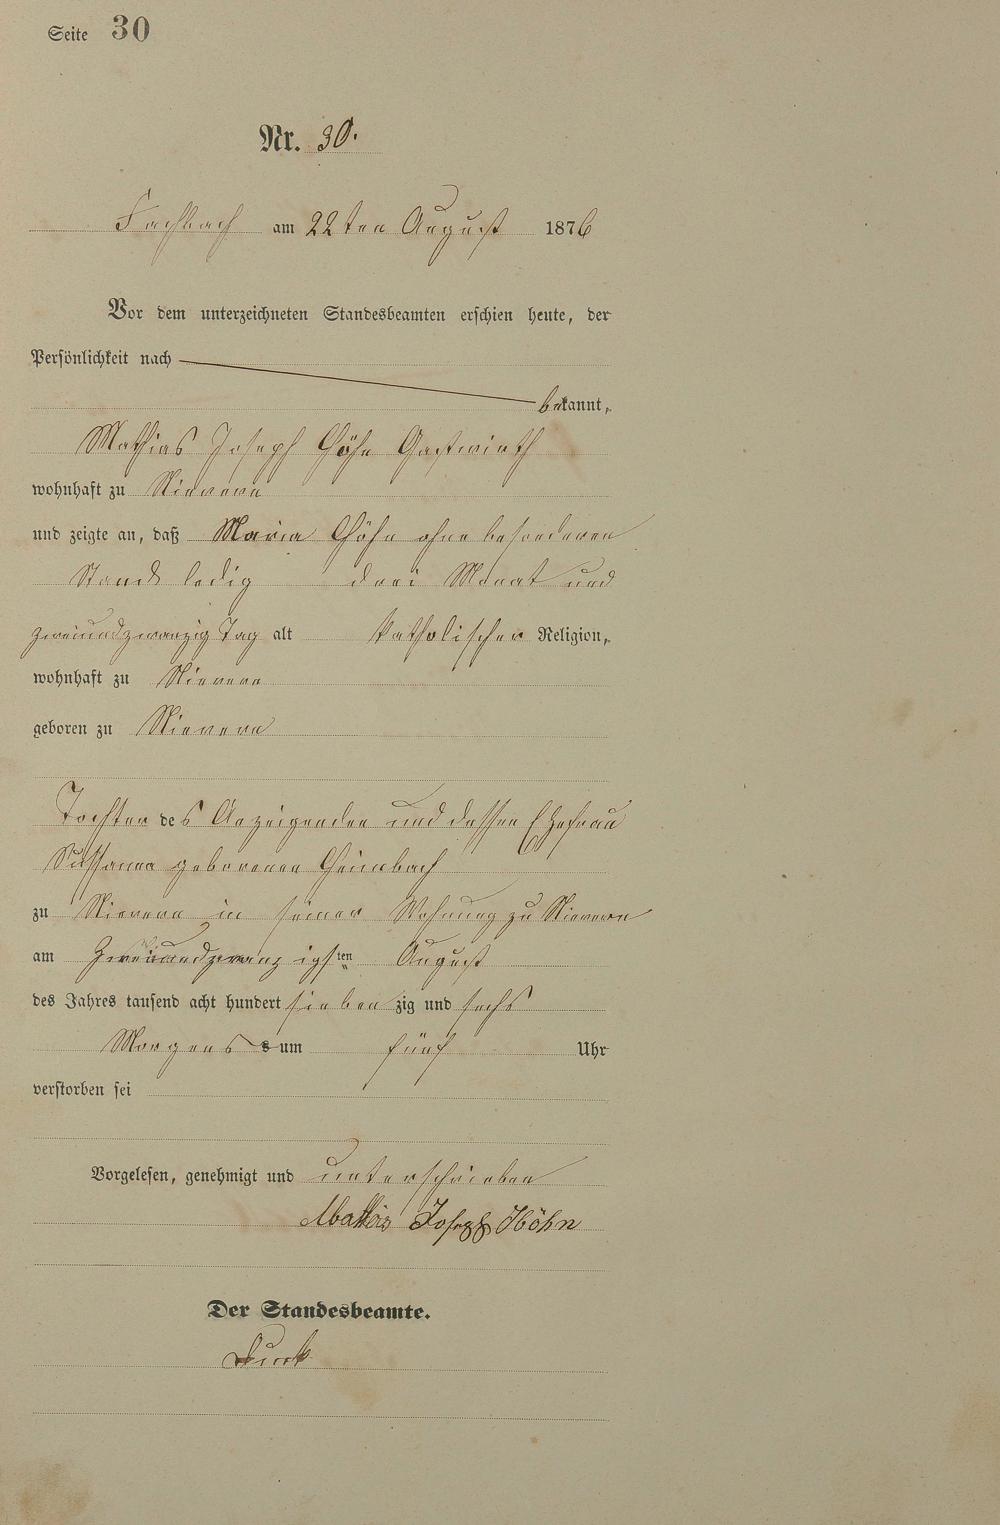 Seite 30
Nr. 30.
Fachbach am 22ten August 1876
Vor dem unterzeichneten Standesbeamten erschien heute, der
Persönlichkeit nach
bekannt,
Mathias Joseph Höhn Gastwirth
wohnhaft zu Nievern
und zeigte an, daß Maria Höhn ohne besonderen
Stand ledig drei Monat und
zweiundzwanzig Tag alt katholischer Religion,
wohnhaft zu Nievern
geboren zu Nievern
Tochter des Anzeigenden und dessen Ehefrau
Sussanna geborenen Heimbach
zu Nievern in seiner Wohnung zu Nievern
am zweiundzwanzigsten August
des Jahres tausend acht hundert siebenzig und sechs
Morgens um fünf Uhr
verstorben sei
Vorgelesen, genehmigt und unterschrieben
Mathias Joseph Höhn
Der Standesbeamte.